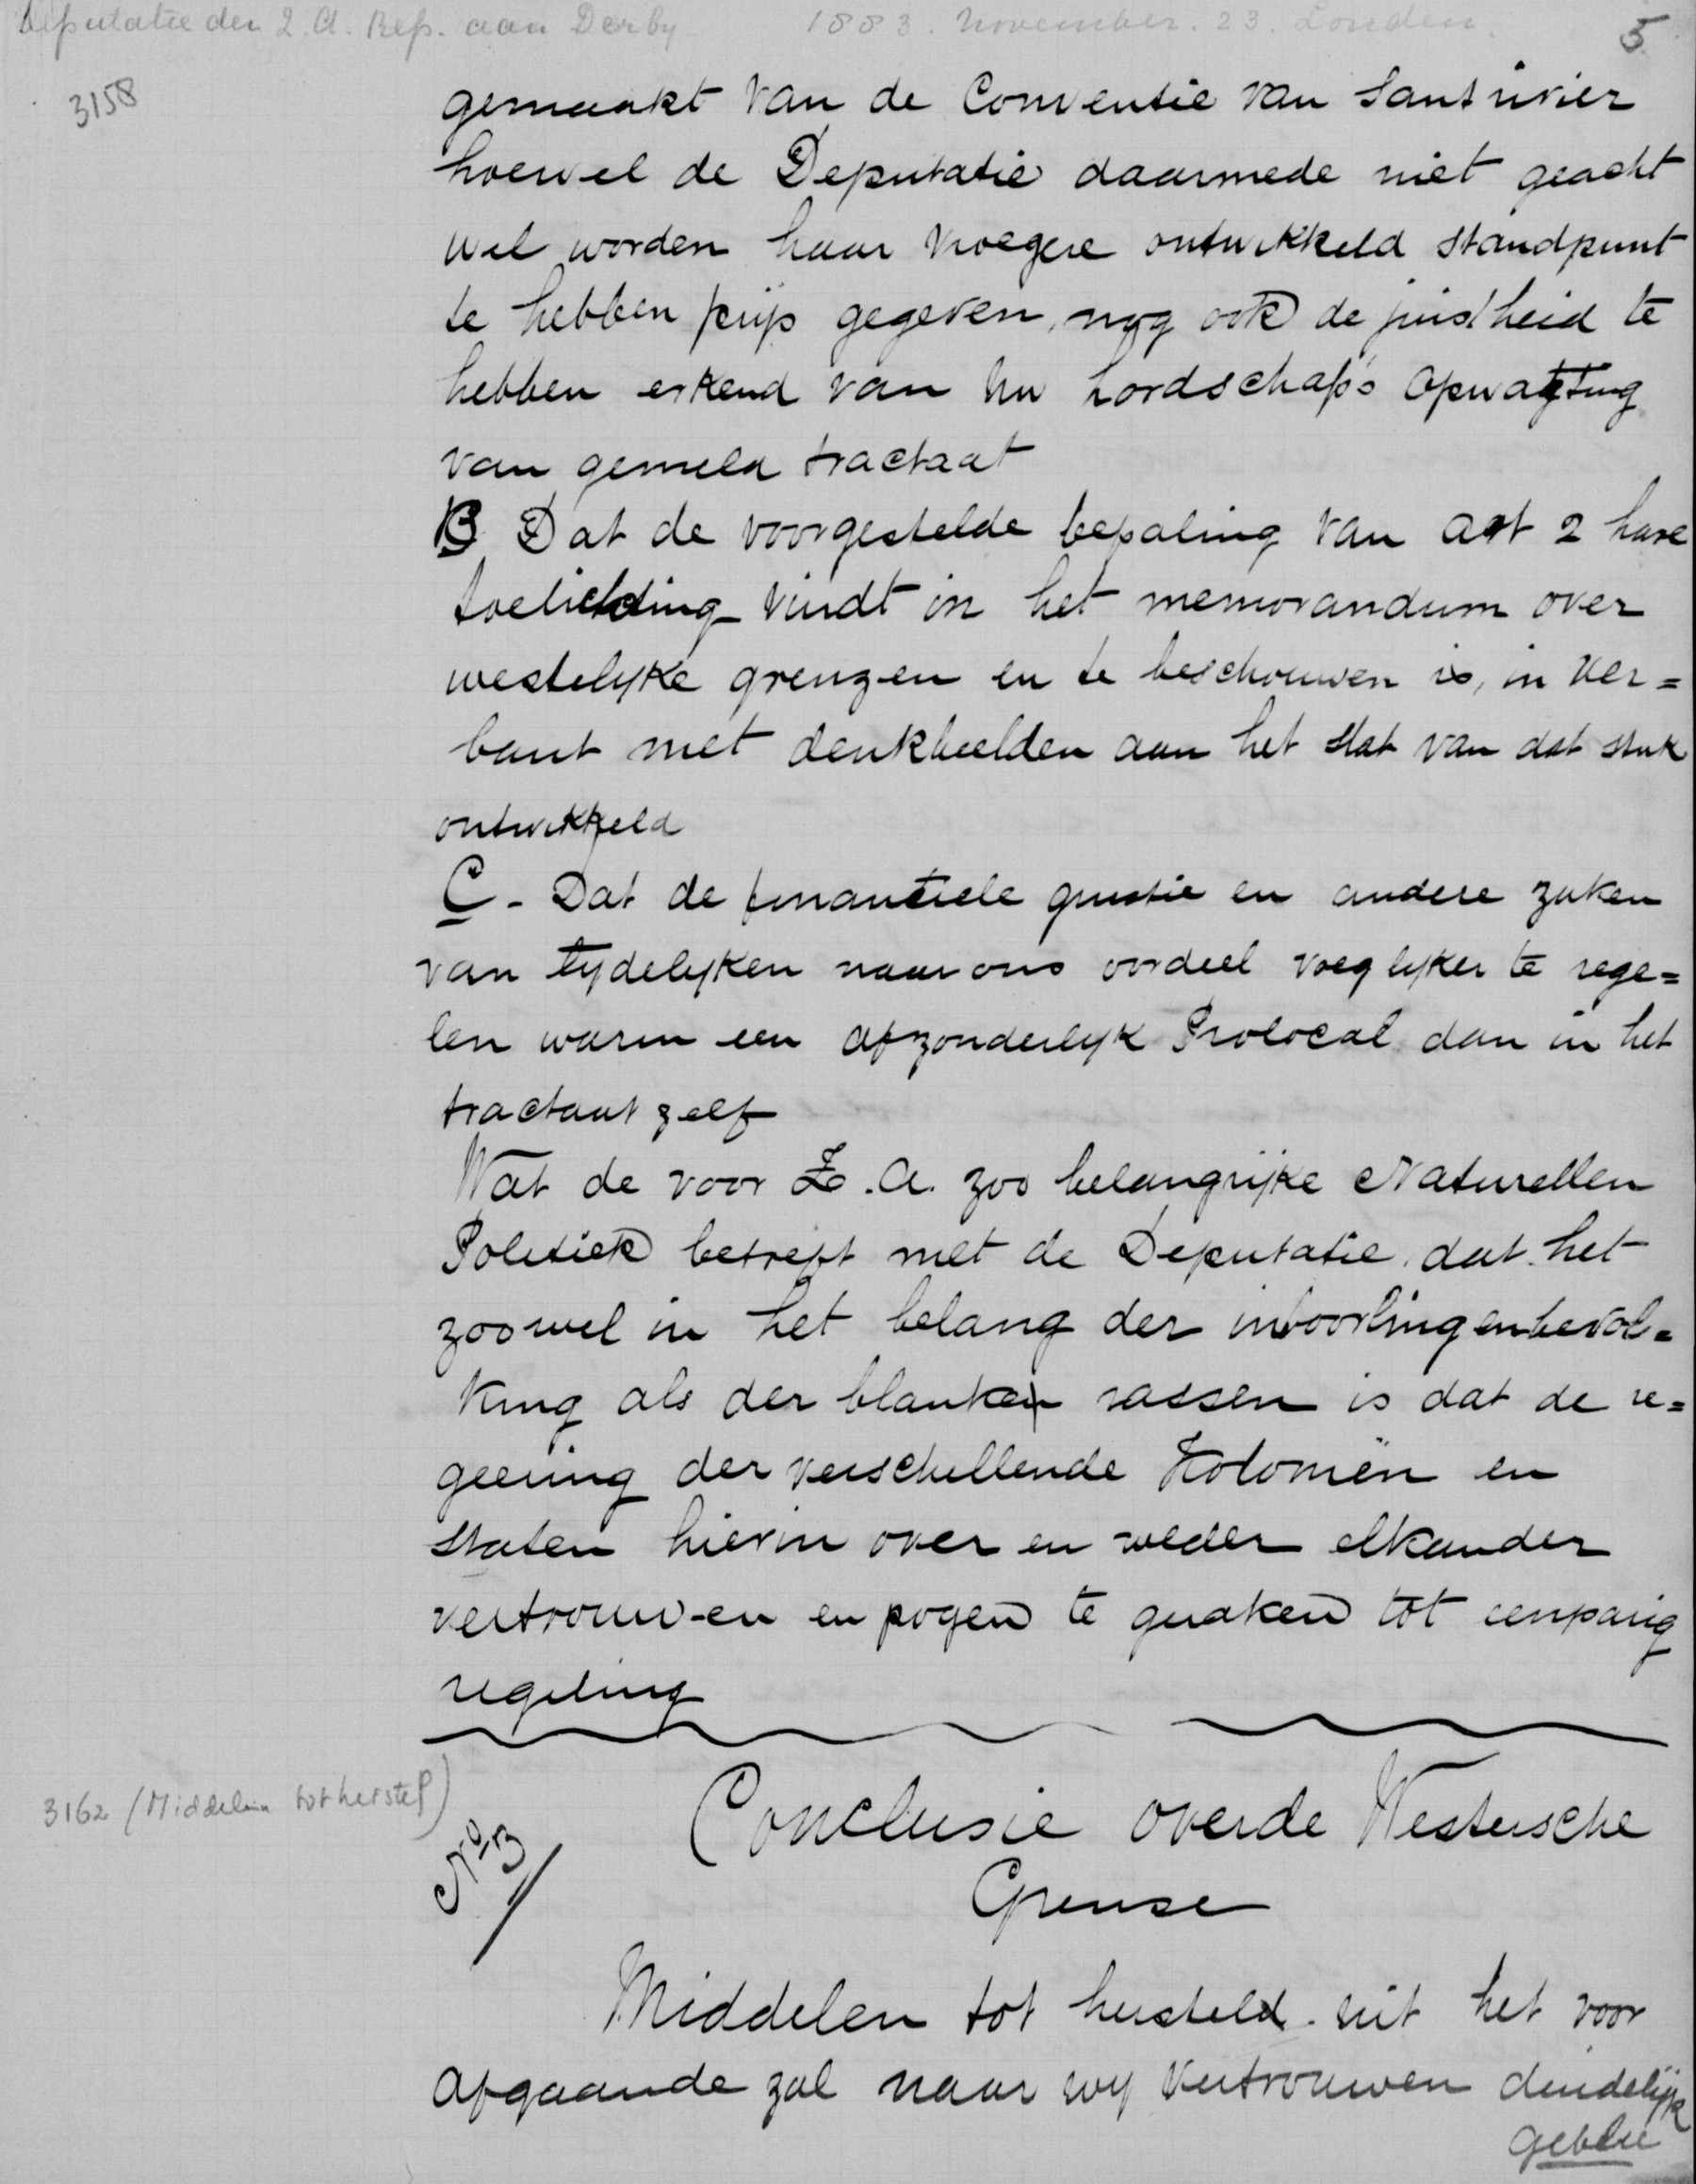 Deputatie der Z. A. Rep. aan Derby 1883. November. 23. Londen. 5
3158
gemaakt van de Conventie van Santrivier
hoewel de Deputatie daarmede niet geacht
wil worden haar vroegere ontwikkeld standpunt
te hebben prijs gegeven, nog ook de juistheid te
hebben erkend van Uw Lordschap's Opvatting
van gemeld tractaat
B Dat de voorgestelde bepaling van art 2 hare
toelichting vindt in het memorandum over
westelyke grenzen en te beschouwen is, in ver=
bant met denkbeelden aan het slot van dat stuk
ontwikkeld
C - Dat de financiele questie en andere zaken
van tydelyken naar ons oordeel voeglyker te rege=
len waren een afzonderlyk Protocal dan in het
tractaat zelf
Wat de voor Z. A. zoo belangrijke Naturellen
Politiek betreft met de Deputatie dat het
zoowel in het belang der inboorlingenbevol=
king als der blanken rassen is dat de re=
geering der verschellende Koloniën en
staten hierin over en weder elkander
vertrouw-en en pogen te geraken tot eenparig
regeling
3162 (Middelen tot herstel)
No 3
Conclusie over de Westersche
Grense
Middelen tot hersteld uit het voor
afgaande zal naar wy vertrouwen duidelijk
geble